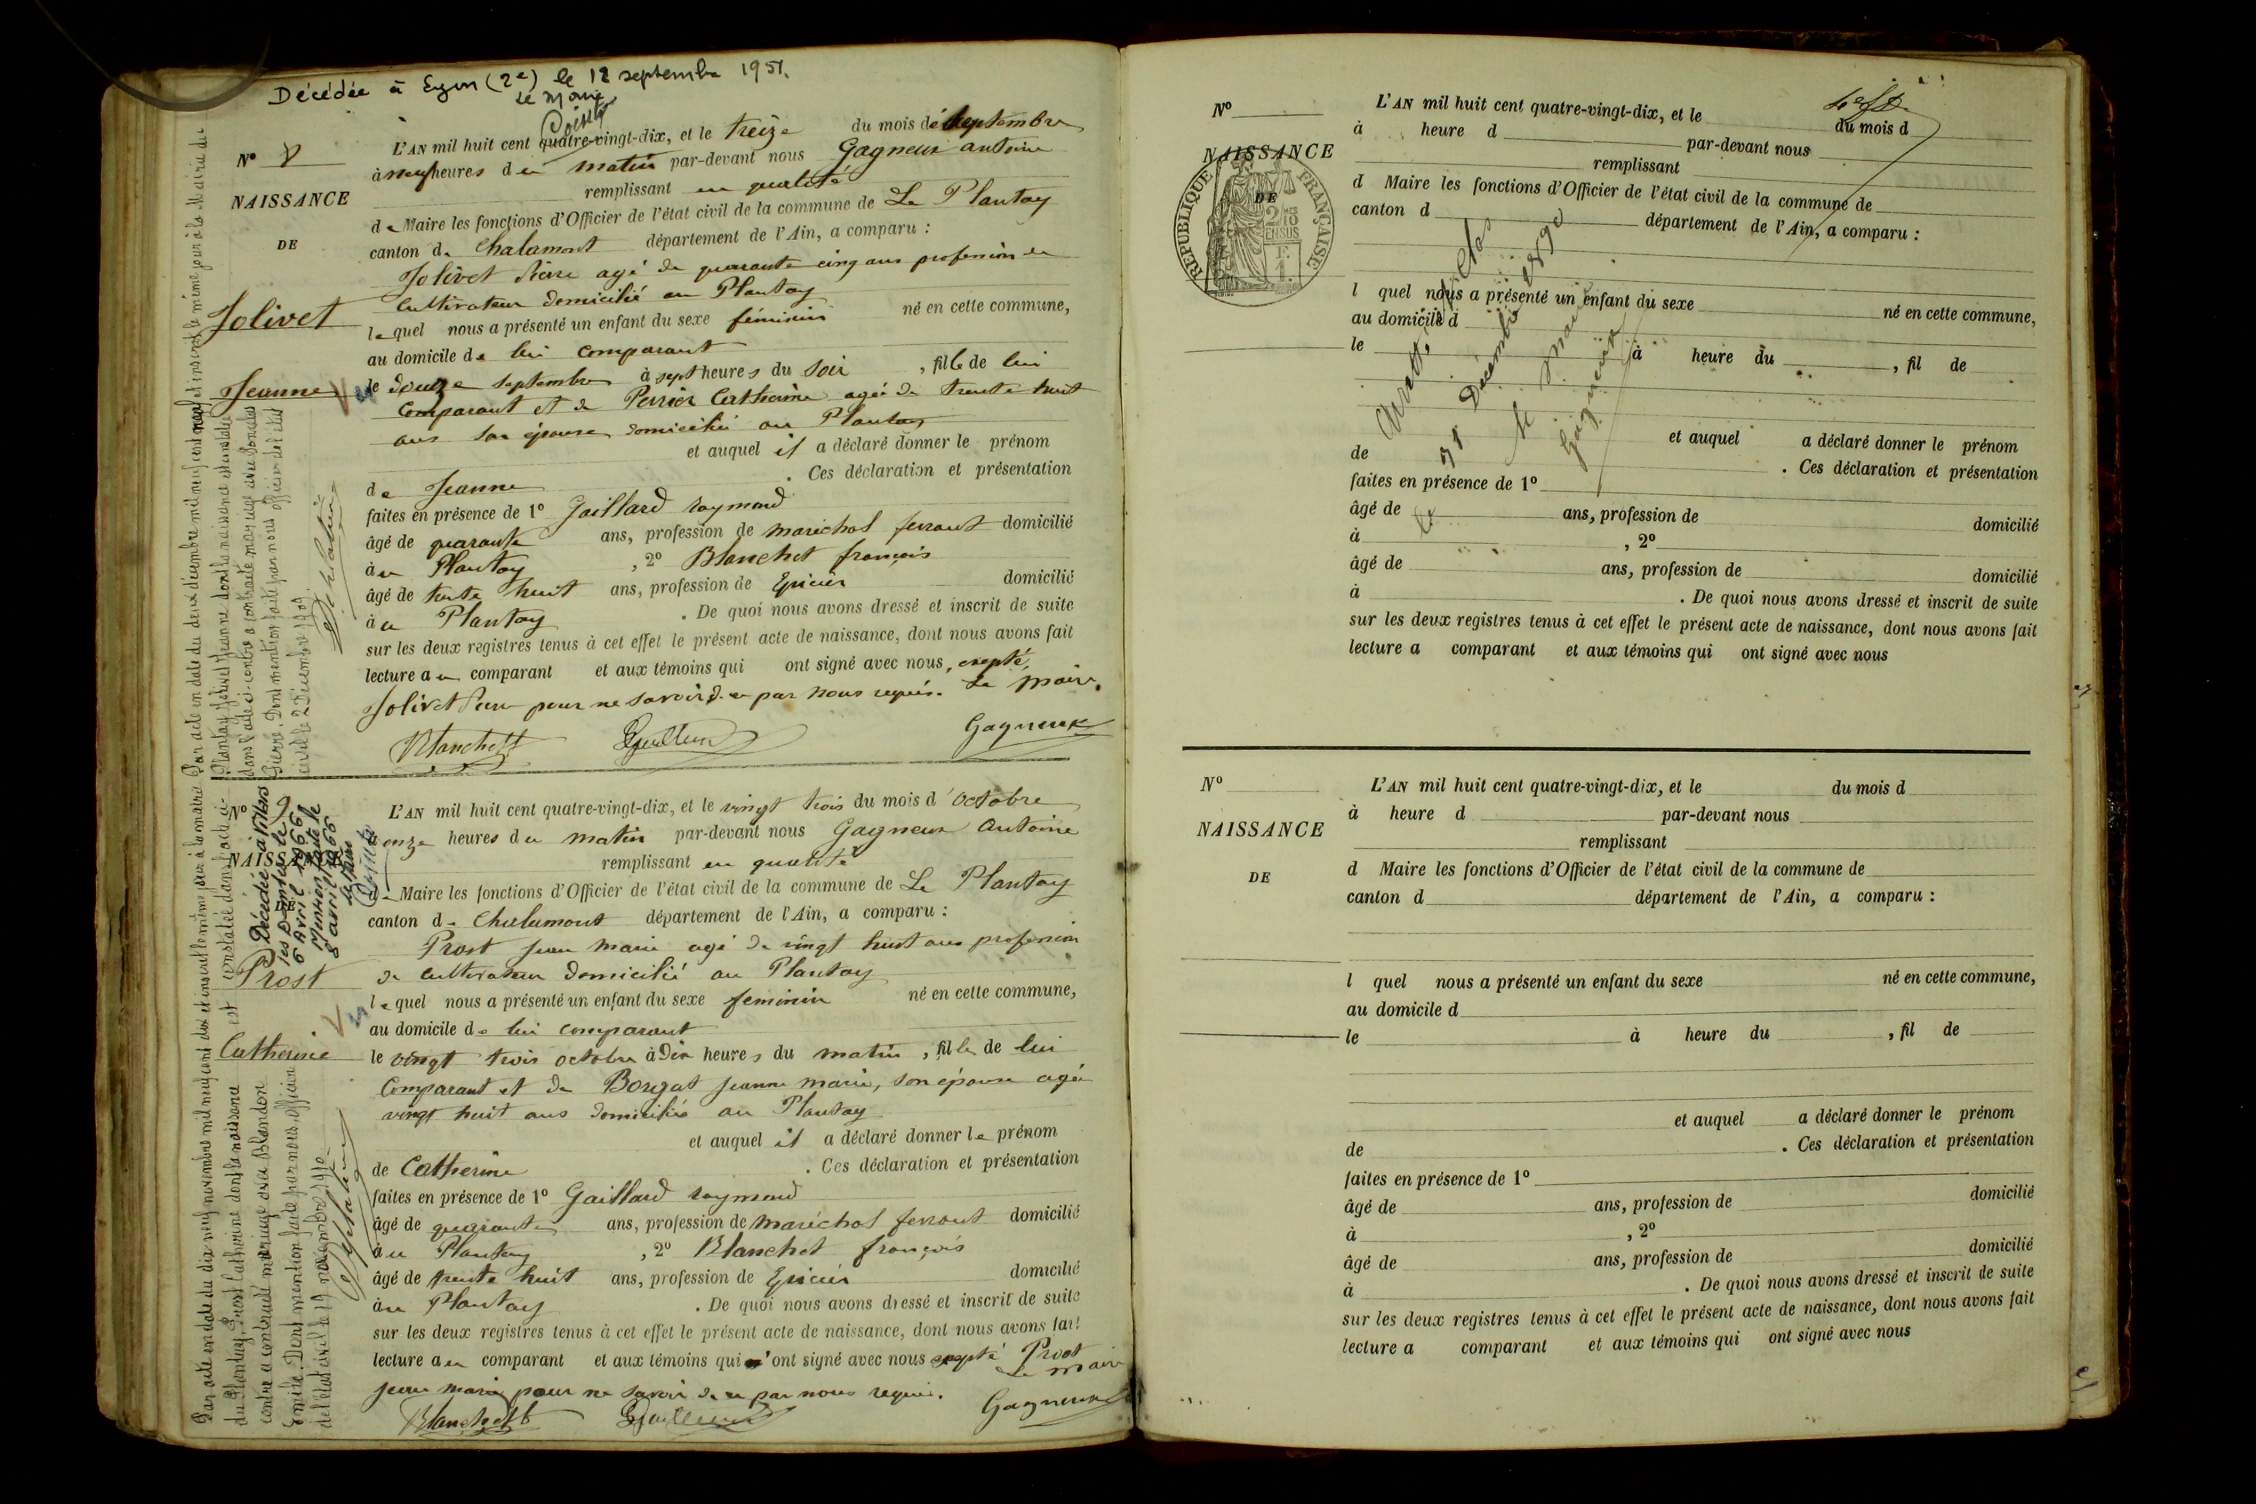 Décédée à Lyon (2e) le 12 septembre 1951.
Le Maire
L'AN mil huit cent quatre-vingt-dix, et le treize du mois de septembre
No 8
à neuf heures du matin par-devant nous Gagneux antoine
remplissant en qualité
NAISSANCE
de Maire les fonctions d'Officier de l'état civil de la commune de Le Plantay
DE
canton de Chalamont département de l'Ain, a comparu :
Jolivet Pierre agé de quarante cinq ans profession de
Cultivateur domicilié au Plantay
Jolivet
lequel nous a présenté un enfant du sexe féminin né en cette commune,
au domicile de lui comparant
Jeanne
le douze septembre à sept heures du soir , fille de lui
Comparant et de Perrier Catherine agée de trente huit
ans son épouse domiciliée au Plantay
et auquel il a déclaré donner le prénom
de Jeanne . Ces déclaration et présentation
faites en présence de 1o Gaillard raymond
âgé de quarante ans, profession de maréchal ferrant domicilié
à au Plantay , 2o Blanchet françois
âgé de trente huit ans, profession de Epicier domicilié
à au Plantay . De quoi nous avons dressé et inscrit de suite
sur les deux registres tenus à cet effet le présent acte de naissance, dont nous avons fait
lecture au comparant et aux témoins qui ont signé avec nous, excepté
Jolivet Pierre pour ne savoir de ce par nous requis. Le maire.
Blanchet Gaillard Gagneux
Par acte en date du deux décembre mil neuf cent neuf et inscrit le même jour à la Mairie du
Plantay, Jolivet Jeanne dont la naissance est constatée
dans l'acte ci-contre a contracté mariage avec
Pierre. Dont mention faite par nous officier de l'état
civil le 2 Décembre 1909
No 9
NAISSANCE
DE
Décédée à Villars
les Dombes le
6 Avril 1966
Mention faite le
8 avril 1966
Le Maire
L'AN mil huit cent quatre-vingt-dix, et le vingt trois du mois d'octobre
à onze heures du matin par-devant nous Gagneux Antoine
remplissant en qualité
de Maire les fonctions d'Officier de l'état civil de la commune de Le Plantay
canton de Chalamont département de l'Ain, a comparu :
Prost jean marie agé de vingt huit ans profession
de cultivateur domicilié au Plantay
Prost
lequel nous a présenté un enfant du sexe feminin né en cette commune,
au domicile de lui comparant
Catherine
le vingt trois octobre à Dix heures du matin , fille de lui
Comparant et de Borgat jeanne marie, son épouse agée
vingt huit ans domiciliée au Plantay
et auquel il a déclaré donner le prénom
de Catherine . Ces déclaration et présentation
faites en présence de 1o Gaillard raymond
âgé de quarante ans, profession de maréchal ferrant domicilié
à au Plantay , 2o Blanchet françois
âgé de trente huit ans, profession de Epicier domicilié
à au Plantay . De quoi nous avons dressé et inscrit de suite
sur les deux registres tenus à cet effet le présent acte de naissance, dont nous avons fait
lecture au comparant et aux témoins qui ont signé avec nous excepté Prost
jean marie pour ne savoir de ce par nous requis. Le maire
Blanchet Gaillard Gagneux
Par acte en date du dix neuf novembre mil neuf cent dix et inscrit le même jour à la mairie
du Plantay, Prost Catherine dont la naissance est constatée dans l'acte ci-
contre a contracté mariage avec Blandon
Emile. Dont mention faite par nous, officier
de l'état civil le 19 novembre 1910
No
L'AN mil huit cent quatre-vingt-dix, et le du mois d
à heure d par-devant nous
NAISSANCE
remplissant
d Maire les fonctions d'Officier de l'état civil de la commune de
DE
canton d département de l'Ain, a comparu :
RÉPUBLIQUE FRANÇAISE
2 10 EN SUS
F. 1.
l quel nous a présenté un enfant du sexe né en cette commune,
au domicile d
le à heure du , fil de
et auquel a déclaré donner le prénom
de . Ces déclaration et présentation
faites en présence de 1o
âgé de ans, profession de domicilié
à , 2o
âgé de ans, profession de domicilié
à . De quoi nous avons dressé et inscrit de suite
sur les deux registres tenus à cet effet le présent acte de naissance, dont nous avons fait
lecture a comparant et aux témoins qui ont signé avec nous
Arrêté et clos
le 31 Décembre 1890
le maire
Gagneux
No
L'AN mil huit cent quatre-vingt-dix, et le du mois d
à heure d par-devant nous
NAISSANCE
remplissant
d Maire les fonctions d'Officier de l'état civil de la commune de
DE
canton d département de l'Ain, a comparu :
l quel nous a présenté un enfant du sexe né en cette commune,
au domicile d
le à heure du , fil de
et auquel a déclaré donner le prénom
de . Ces déclaration et présentation
faites en présence de 1o
âgé de ans, profession de domicilié
à , 2o
âgé de ans, profession de domicilié
à . De quoi nous avons dressé et inscrit de suite
sur les deux registres tenus à cet effet le présent acte de naissance, dont nous avons fait
lecture a comparant et aux témoins qui ont signé avec nous